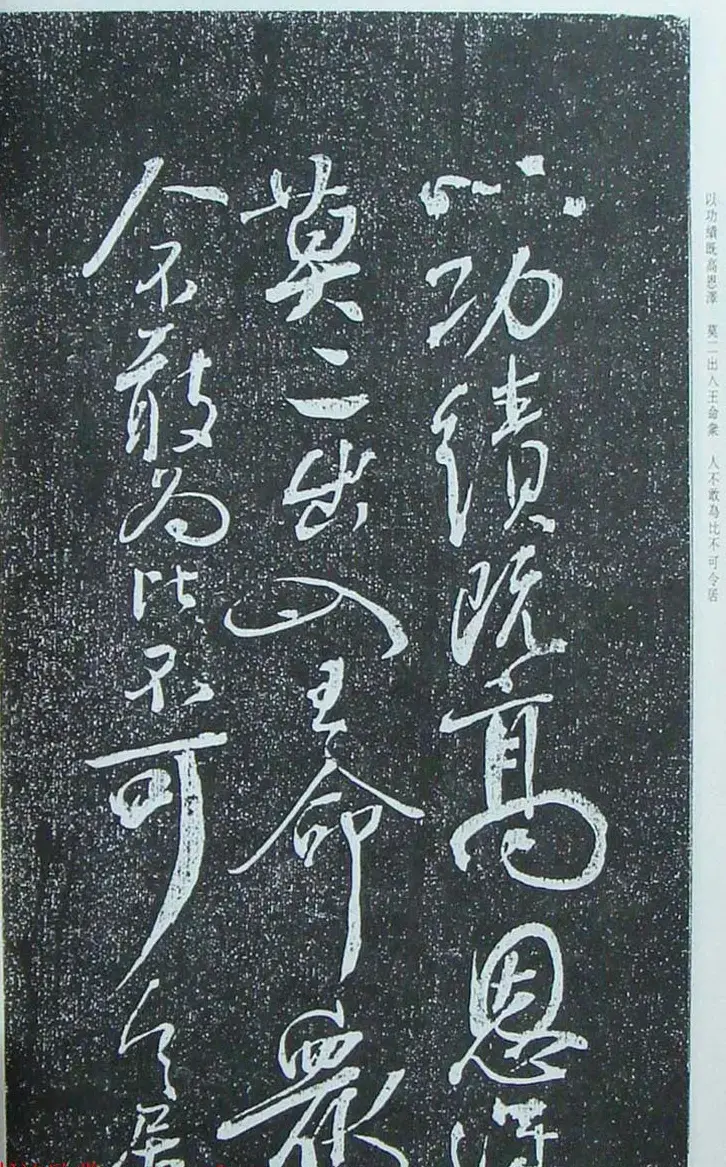 以功績既高恩澤
莫二出入王命衆
人不敢為比不可令居
以功績既高恩澤　莫二出入王命衆　人不敢為比不可令居